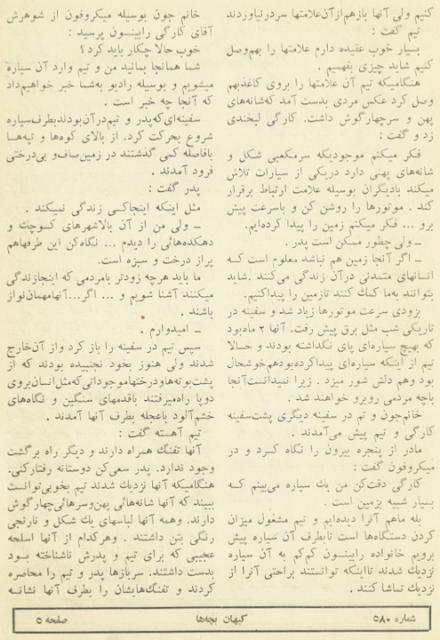 کنیم ولی آنها بازهم‌ازآن‌علامتها سردرنیاوردند
تیم گفت :
بسیار خوب عقیده دارم علامتها را بهم‌وصل
کنیم شاید چیزی بفهمیم .
هنگامیکه تیم آن علامتها را بروی کاغذبهم
وصل کرد عکس مردی بدست آمد که‌شانه‌های
پهن و سرچهارگوش داشت. کارگی لبخندی
زد و گفت :
فکر میکنم موجودیکه سرمکعبی شکل و
شانه‌های پهنی دارد دریکی از سیارات تلاش
میکند بادیگران بوسیله علامت ارتباط برقرار
کند . موتورها را روشن کن و باسرعت پیش
برو ... فکر میکنم زمین را پیدا کرده‌ایم.
ــ ولی چطور ممکن است پدر .
ــ اگر آنجا زمین هم نباشد معلوم است که
انسانهای متمدنی درآن زندگی می‌کنند .شاید
بتوانند به‌ما کمك کنند تازمین را پیداکنیم.
بزودی سرعت موتورها زیاد شد و سفینه در
تاریکی شب مثل برق پیش رفت. آنها ۲ ماه‌بود
که بهیچ سیاره‌ای پای نگذاشته بودند و حالا
تیم از اینکه سیاره‌ای پیداکرده‌بودهم‌خوشحال
بود وهم دلش شور میزد . زیرا نمیدانست‌آنجا
باچه مردمی روبرو خواهند شد .
خانم‌جون و تم در سفینه دیگری پشت‌سفینه
کارگی و تیم پیش می‌آمدند .
مادر از پنجره بیرون را نگاه کرد و در
میکروفون گفت :
کارگی دقت‌کن من یك سیاره می‌بینم که
بسیار شبیه بزمین است .
بله ماهم آنرا دیده‌ایم و تیم مشغول میزان
کردن دستگاه‌ها است تابطرف آن سیاره پیش
برویم خانواده رابینسون کم‌کم به آن سیاره
نزدیك شدند تااینکه توانستند براحتی آنرا از
نزدیك تماشا کنند .
خانم جون بوسیله میکروفون از شوهرش
آقای کارگی رابینسون پرسید :
خوب حالا چکار باید کرد ؟
شما همانجا بمانید من و تیم وارد آن سیاره
میشویم و بوسیله رادیو به‌شما خبر خواهیم‌داد
که آنجا چه خبر است .
سفینه‌ای‌که‌پدر و تیم‌درآن‌بودندبطرف‌سیاره
شروع بحرکت کرد. از بالای کوه‌ها و تپه‌ها
بافاصله کمی گذشتند در زمین‌صاف‌و بی‌درختی
فرود آمدند .
پدر گفت :
مثل اینکه اینجاکسی زندگی نمیکند .
ــ ولی من از آن بالاشهرهای کوچك و
دهکده‌هائی را دیدم ... نگاه‌کن این طرفهاهم
پراز درخت و سبزه است.
ما باید هرچه زودتر بامردمی که اینجازندگی
میکنند آشنا شویم و ... اگر...آنهامهمان‌نواز
باشند .
ــ امیدوارم .
سپس تیم در سفینه را باز کرد وازآن‌خارج
شدند ولی هنوز بخود نجنبیده بودند که از
پشت‌بوته‌هاودرختهاموجوداتی‌که‌مثل‌انسان‌بروی
دوپا راه‌میرفتند باقدمهای سنگین و نگاه‌های
خشم‌آلود باعجله بطرف آنها آمدند .
تیم آهسته گفت :
آنها تفنگ همراه دارند و دیگر راه برگشت
وجود ندارد. پدر سعی‌کن دوستانه رفتارکنی.
هنگامیکه آنها نزدیك شدند تیم بخوبی‌توانست
ببیند که آنها شانه‌هائی پهن‌وسرهائی‌چهارگوش
دارند. وهمه آنها لباسهای یك شکل و نارنجی
رنگی بتن داشتند . وهرکدام از آنها اسلحه
عجیبی که برای تیم و پدرش ناشناخته بود
بدست داشتند. سربازها پدر و تیم را محاصره
کردند و تفنگ‌هایشان را بطرف آنها نشانه
شماره ۵۸۰
کیهان بچه‌ها
صفحه ۵